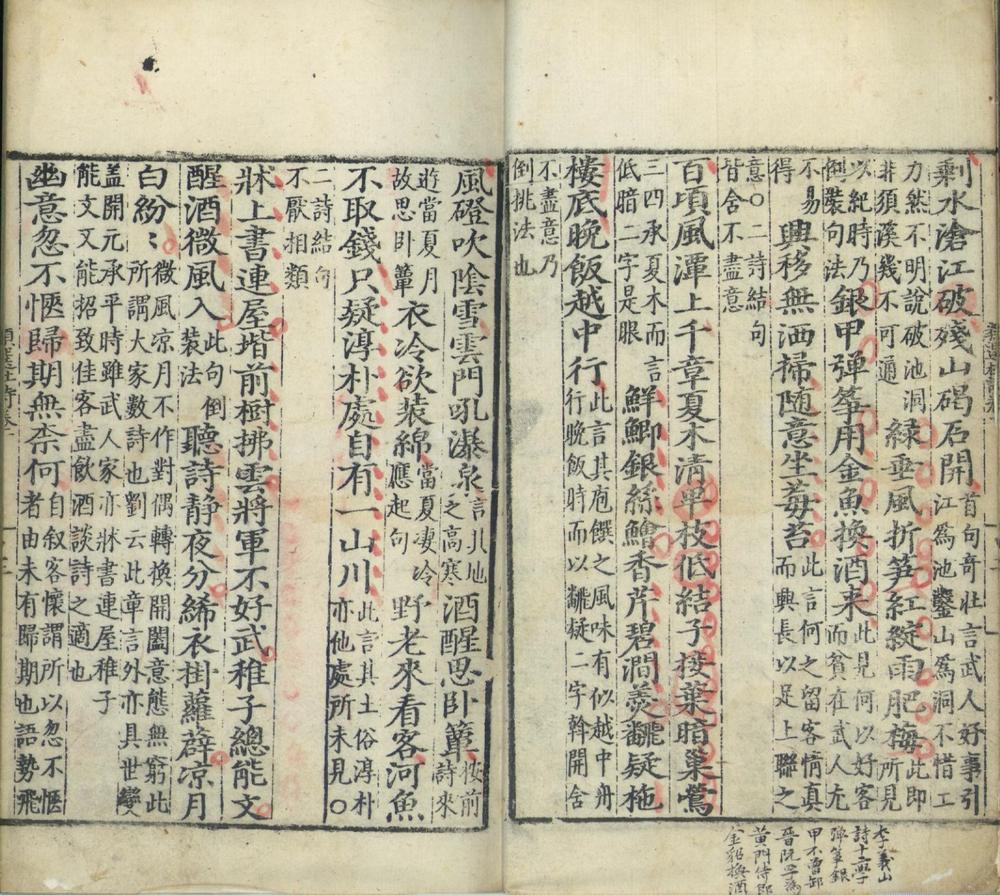 剩水滄江破殘山碣石開
首句奇壯言武人好事引
江爲池鑿山爲洞不惜工
力然不明說破池洞
非須溪幾不可通
綠垂風折笋紅綻雨肥梅
此即
所見
以紀時乃
倒裝句法
銀甲弹筝用金魚換酒来
此見何以好客
而貧在武人尢
不易
得
興移無洒掃随意坐莓苔
此言何之留客情真
而興長以足上聯之
意○二詩結句
皆含不盡意
百頃風潭上千章夏木清卑枝低結子接葉暗巢鶯
三四承夏木而言
低暗二字是眼
鮮鯽銀絲鱠香芹碧澗羹飜疑柂
樓底晚飯越中行
此言其庖饌之風味有似越中舟
行晚飯時而以飜疑二字斡開含
不盡意乃
倒挑法也
李義山
詩十三學
弹筝銀
甲不曾卸
晉阮孚為
黄門侍郎
金貂換酒
風磴吹陰雪雲門吼瀑泉
言其地
之高寒
酒醒思卧簟
按前
詩來
遊當夏月
故思卧簟
衣冷欲装綿
當夏凄冷
應起句
野老來看客河魚
不取錢只疑淳朴處自有一山川
此言其土俗淳朴
亦他處所未見○
二詩結句
不厭相類
牀上書連屋堦前樹拂雲將軍不好武稚子總能文
醒酒微風入
此句倒
装法
聽詩静夜分絺衣掛蘿薜凉月
白紛〻
微風凉月不作對偶轉換開闔意態無窮此
所謂大家數詩也劉云此章言外亦具世變
蓋開元承平時雖武人家亦牀書連屋稚子
能文又能招致佳客盡飲酒談詩之適也
幽意忽不愜歸期無柰何
自叙客懷謂所以忽不愜
者由未有歸期也語勢飛